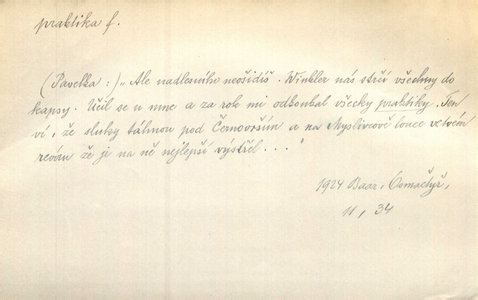 praktika f.
(Pavelka:) „Ale nadlesního neošidíš. Winkler nás strčí všechny do
kapsy. Učil se u mne a za rok mi odkoukal všecky praktiky. Ten
ví, že sluky táhnou pod Černovršim a na Myslivcově louce
že je na ně nejlepší výstřel . . . "
1924 Baar, Osmačtyř,
II, 34